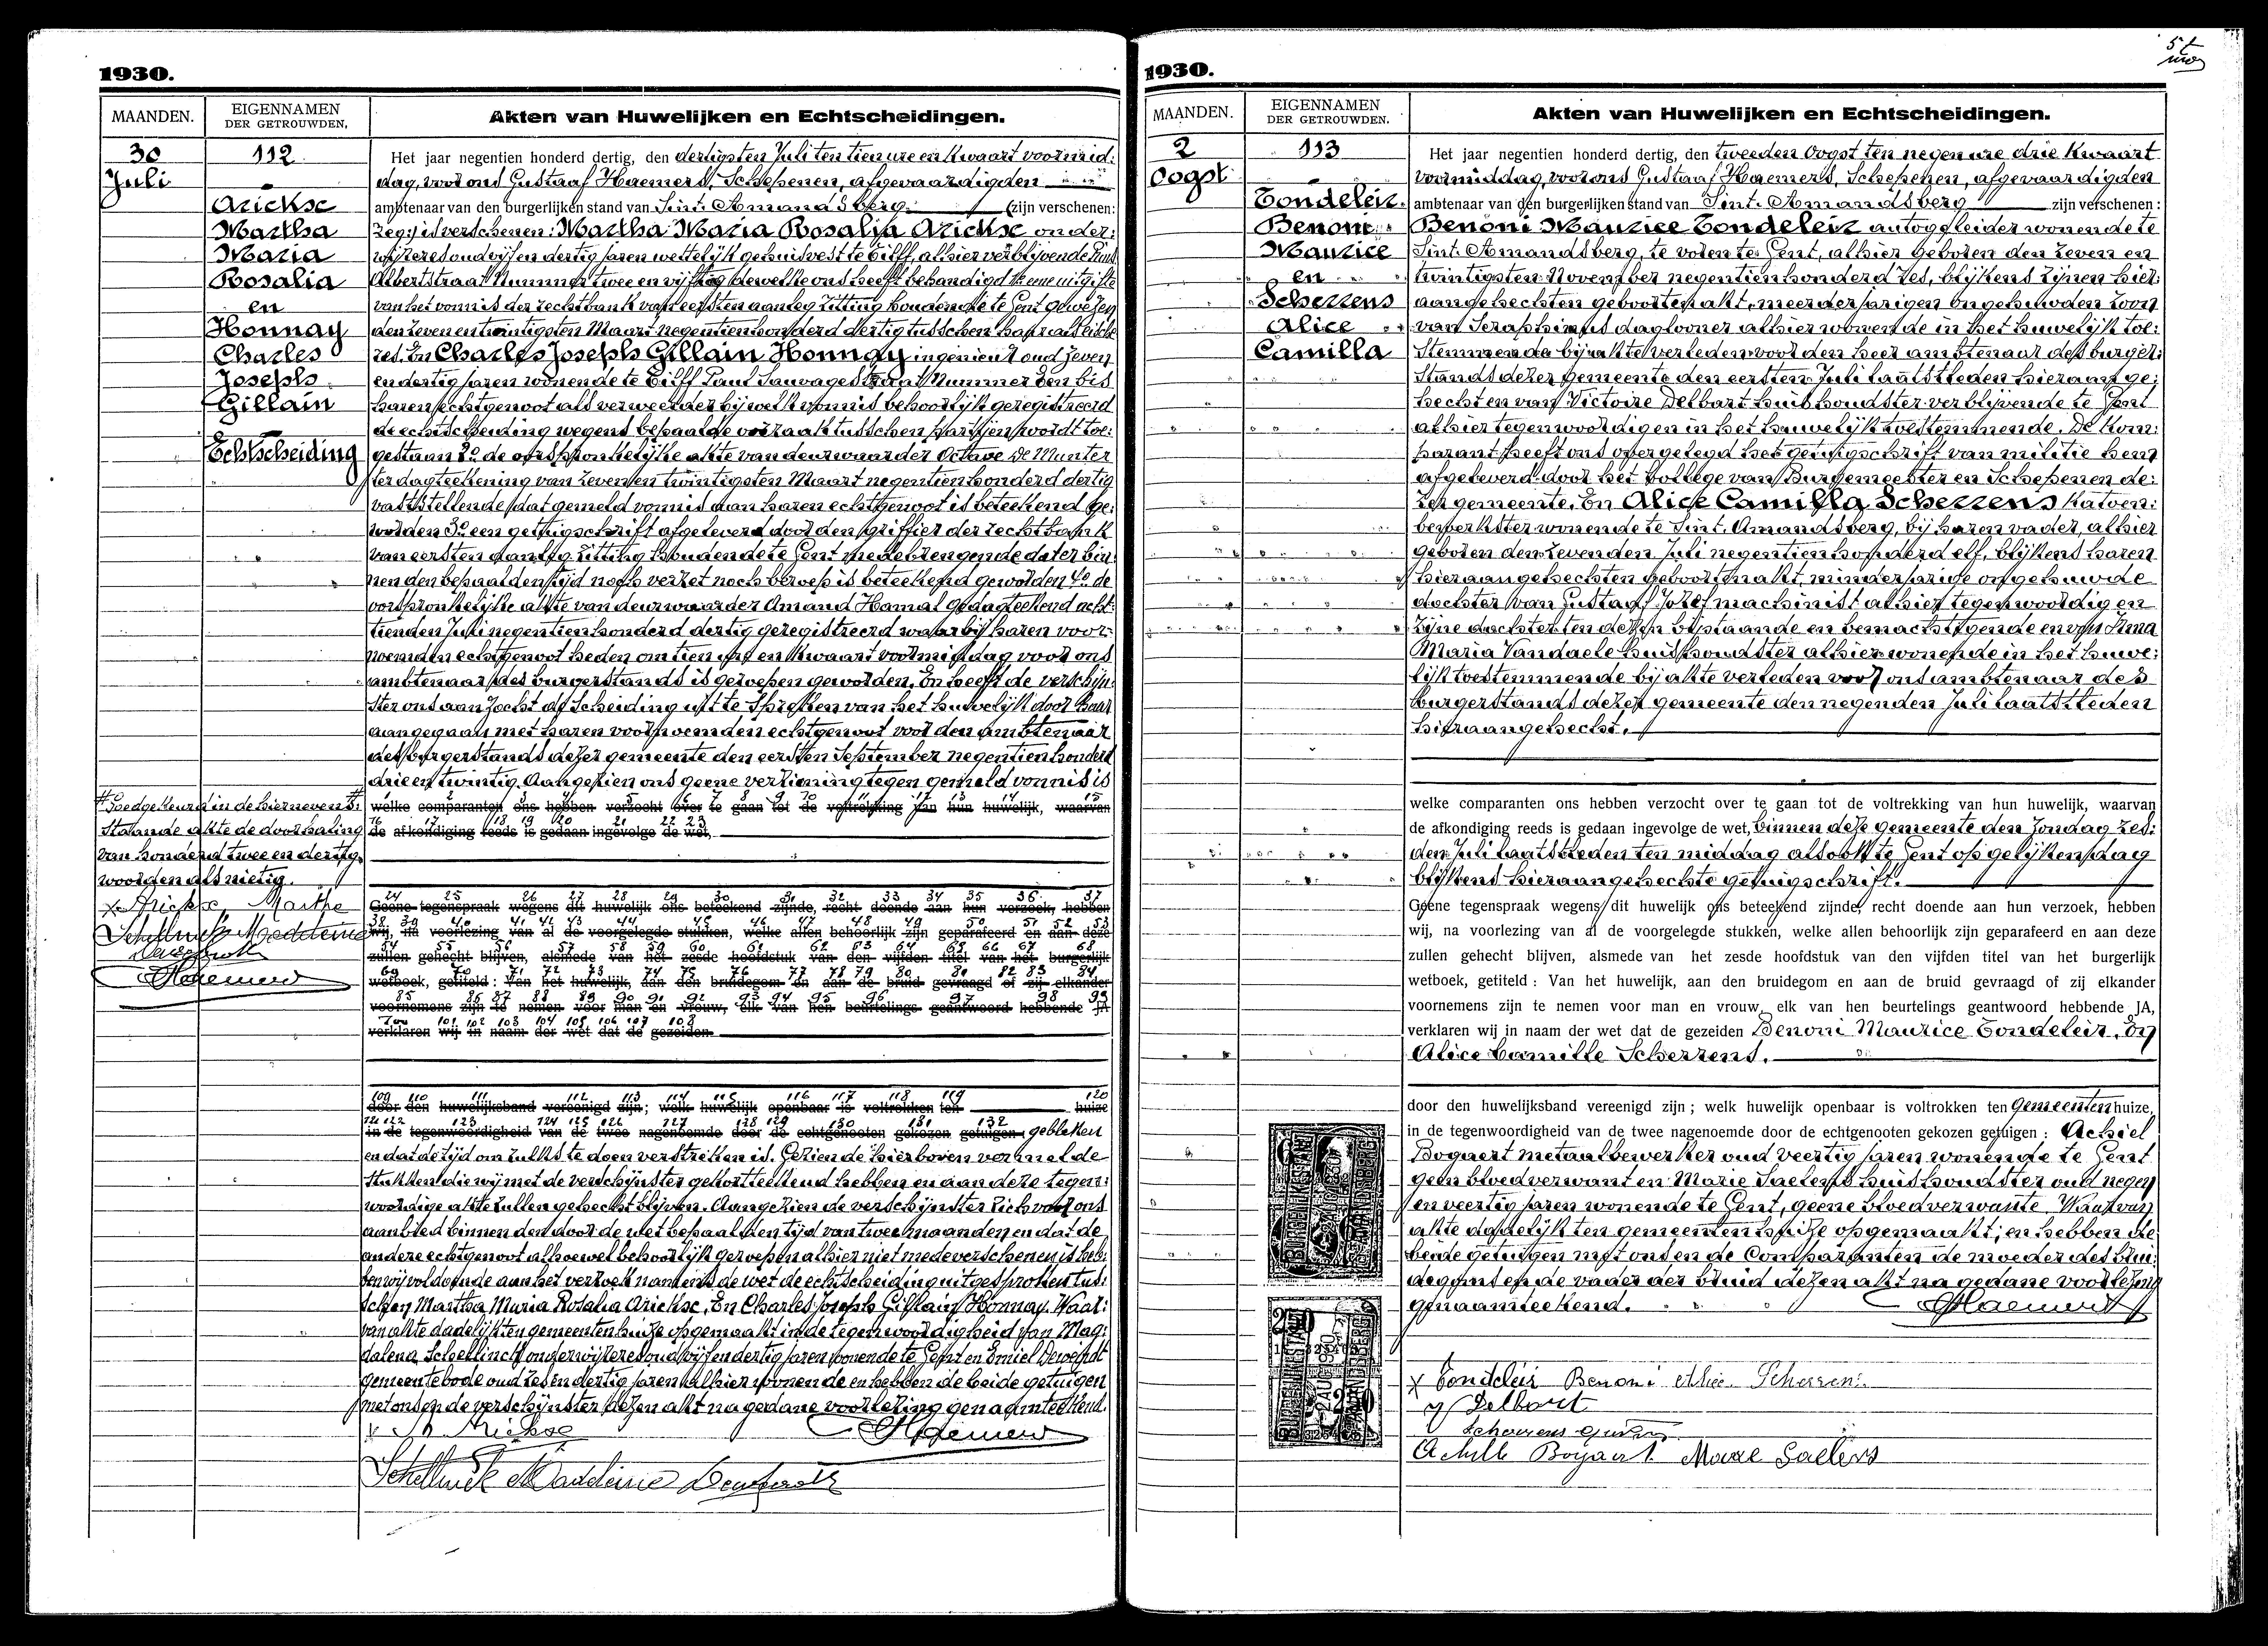 1930.
MAANDEN.
EIGENNAMEN
DER GETROUWDEN.
Akten van Huwelijken en Echtscheidingen.
30
Juli
112
Arickse
Martha
Maria
Rosalia
en
Honnay
Charles
Joseph
Gillain
Echtscheiding
Het jaar negentien honderd dertig, den dertigsten Juli ten tien ure en kwaart voormid:
dag, voor ons Gustaaf Haemers, Schepenen, afgevaardigden
ambtenaar van den burgerlijken stand van Sint-Amandsberg (zijn verschenen:
zegg: is verschenen: Martha Maria Rosalia Arickse onder:
wijzeres oud vijf en dertig jaren wettelijk gehuisvest te Tilff, alhier verblijvende
Albertstraat Nummer twee en vijftig dewelke ons heeft behandigd 1e eene uitgifte
van het vonnis der rechtbank van eersten aanleg zitting houdende te Gent gewezen
den zeven en twintigsten Maart negentien honderd dertig tusschen haar als eische
res. En Charles Joseph Gillain Honnay ingenieur oud zeven
en dertig jaren wonende te Tilff Paul Sauvagestraat Nummer Een bis
haren echtgenoot als verweerder bij welk vonnis behoorlijk geregistreerd
de echtscheiding wegens bepaalde oorzaak tusschen partijen wordt toe:
gestaan 2e de oorspronkelijke akte van deurwaarder Octave De Munter
ter dagteekening van zeven en twintigsten Maart negentien honderd dertig
vaststellende dat gemeld vonnis aan haren echtgenoot is beteekend ge:
worden 3e een getuigschrift afgeleverd door den griffier der rechtbank
van eersten aanleg zitting houdende te Gent medebrengende dat er bin:
nen den bepaalden tijd noch verzet noch beroep is beteekend geworden 4e de
oorspronkelijke akte van deurwaarder Amand Hamal gedagteekend acht:
tienden Juli negentien honderd dertig geregistreerd waarbij haren voor:
noemden echtgenoot heden om tien ure en kwaart voormiddag voor ons
ambtenaar des burgerstands is geroepen geworden. En heeft de verschijn:
ster ons aanzocht de scheiding uit te spreken van het huwelijk door haar
aangegaan met haren voornoemden echtgenoot voor den ambtenaar
des burgerstands dezer gemeente den eersten September negentien honderd
drie en twintig. Aangezien ons geene verzieming tegen gemeld vonnis is
welke comparanten ons hebben verzocht over te gaan tot de voltrekking van hun huwelijk, waarvan
de afkondiging reeds is gedaan ingevolge de wet,
Goedgekeurd in de hiernevens:
staande akte de doorhaling
van honderd twee en dertig
woorden als nietig.
x Arickse, Marthe
Schellinck Madeleine
Haemers
Geene tegenspraak wegens dit huwelijk ons beteekend zijnde, recht doende aan hun verzoek, hebben
wij, na voorlezing van al de voorgelegde stukken, welke allen behoorlijk zijn geparafeerd en aan deze
zullen gehecht blijven, alsmede van het zesde hoofdstuk van den vijfden titel van het burgerlijk
wetboek, getiteld : Van het huwelijk, aan den bruidegom en aan de bruid gevraagd of zij elkander
voornemens zijn te nemen voor man en vrouw, elk van hen beurtelings geantwoord hebbende JA,
verklaren wij in naam der wet dat de gezeiden
door den huwelijksband vereenigd zijn ; welk huwelijk openbaar is voltrokken ten huize
in de tegenwoordigheid van de twee nagenoemde door de echtgenooten gekozen getuigen : gebleken
en dat de tijd om zulks te doen verstreken is. Gezien de hierboven vermelde
stukken die wij met de verschijnster gekortteekend hebben en aan deze tegen:
woordige akte zullen gehecht blijven. Aangezien de verschijnster zich voor ons
aanbied binnen den door de wet bepaalden tijd van twee maanden en dat de
andere echtgenoot alhoewel behoorlijk geroepen alhier niet mede verschenen is heb:
ben wij voldoende aan het verzoek namens de wet de echtscheiding uitgesproken tus:
schen Martha Maria Rosalia Arickse, En Charles Joseph Gillain Honnay. Waar:
van akte dadelijk ten gemeentenhuize opgemaakt in de tegenwoordigheid van Mag:
dalena Schellinck onderwijzeres oud vijf en dertig jaren wonende te Gent en Emiel
gemeentebode oud zes en dertig jaren alhier wonende en hebben de beide getuigen
met ons en de verschijnster dezen akt na gedane voorlezing genaamteekend.
x M. Arickse
Haemers
Schellinck Madeleine
1930.
MAANDEN.
EIGENNAMEN
DER GETROUWDEN.
Akten van Huwelijken en Echtscheidingen.
2
Oogst
113
Tondeleir.
Benoni
Maurice
en
Scherrens
Alice
Camilla
Het jaar negentien honderd dertig, den tweeden Oogst ten negen ure drie kwaart
vormiddag, voor ons Gustaaf Haemers, Schepenen, afgevaardigden
ambtenaar van den burgerlijken stand van Sint-Amandsberg zijn verschenen :
Benoni Maurice Tondeleir autogeleider wonende te
Sint-Amandsberg, te voren te Gent, alhier geboren den zeven en
twintigsten November negentien honderd zes, blijkens zijnen hier:
aangehechten geboortenakt, meerderjarigen ongehuwden zoon
van Seraphinus dagloner alhier wonende in het huwelijk toe:
stemmende bij akte verleden voor den heer ambtenaar des burger:
stands dezer gemeente den eersten Juli laatstleden hieraan ge:
hecht en van Victoire Delbart huishoudster verblijvende te Gent
alhier tegenwoordig en in het huwelijk toestemmende. De kom:
parant heeft ons overgelegd het getuigschrift van militie hem
afgeleverd door het kollege van Burgemeester en Schepenen de:
zer gemeente. En Alice Camilla Scherrens katoen:
bewerkster wonende te Sint-Amandsberg, bij haren vader, alhier
geboren den zevenden Juli negentien honderd elf, blijkens haren
hieraangehechten geboortenakt, minderjarige ongehuwde
dochter van Gustaaf Jozef machinist alhier tegenwoordig en
zijne dochter ten dezen bijstaande en bemachtigende en van Irma
Maria Vandaele huishoudster alhier wonende in het huwe:
lijk toestemmende bij akte verleden voor ons ambtenaar des
burgerstands dezer gemeente den negenden Juli laatstleden
hieraangehecht.
welke comparanten ons hebben verzocht over te gaan tot de voltrekking van hun huwelijk, waarvan
de afkondiging reeds is gedaan ingevolge de wet, binnen deze gemeente den Zondag zes:
den Juli laatstleden ten middag alsook te Gent op gelijken dag
blijkens hieraangehechte getuigschrift.
Geene tegenspraak wegens dit huwelijk ons beteekend zijnde, recht doende aan hun verzoek, hebben
wij, na voorlezing van al de voorgelegde stukken, welke allen behoorlijk zijn geparafeerd en aan deze
zullen gehecht blijven, alsmede van het zesde hoofdstuk van den vijfden titel van het burgerlijk
wetboek, getiteld : Van het huwelijk, aan den bruidegom en aan de bruid gevraagd of zij elkander
voornemens zijn te nemen voor man en vrouw, elk van hen beurtelings geantwoord hebbende JA,
verklaren wij in naam der wet dat de gezeiden Benoni Maurice Tondeleir, En
Alice Camille Scherrens.
door den huwelijksband vereenigd zijn ; welk huwelijk openbaar is voltrokken ten gemeentenhuize,
in de tegenwoordigheid van de twee nagenoemde door de echtgenooten gekozen getuigen : Achiel
Bogaert metaalbewerker oud veertig jaren wonende te Gent
geen bloedverwant en Marie Saelens huishoudster oud negen
en veertig jaren wonende te Gent, geene bloedverwante. Waarvan
akte dadelijk ten gemeentenhuize opgemaakt; en hebben de
beide getuigen met ons en de Comparanten de moeder des brui:
degoms en de vader der bruid dezen akt na gedane voorlezing
genaamteekend.
Haemers
x Tondeleir Benoni Alice Scherrens
Delbart
Scherrens Gustaaf
Achille Bogaert Marie Saelens